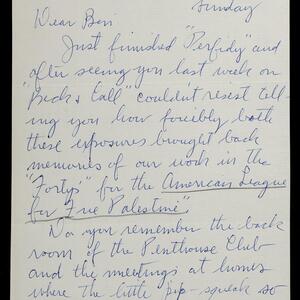 Sunday
Dear Ben
Just finished "Perfidy" and
after seeing you last week on
"Beck & Call" couldn't resist tell-
ing you how forcibly both
these exposures brought back
memories of our work in the
"Fortys" for the American League
for Free Palestine".
Do you remember the back
room of the Penthouse Club
and the meetings at homes
where the little pip-squeak so